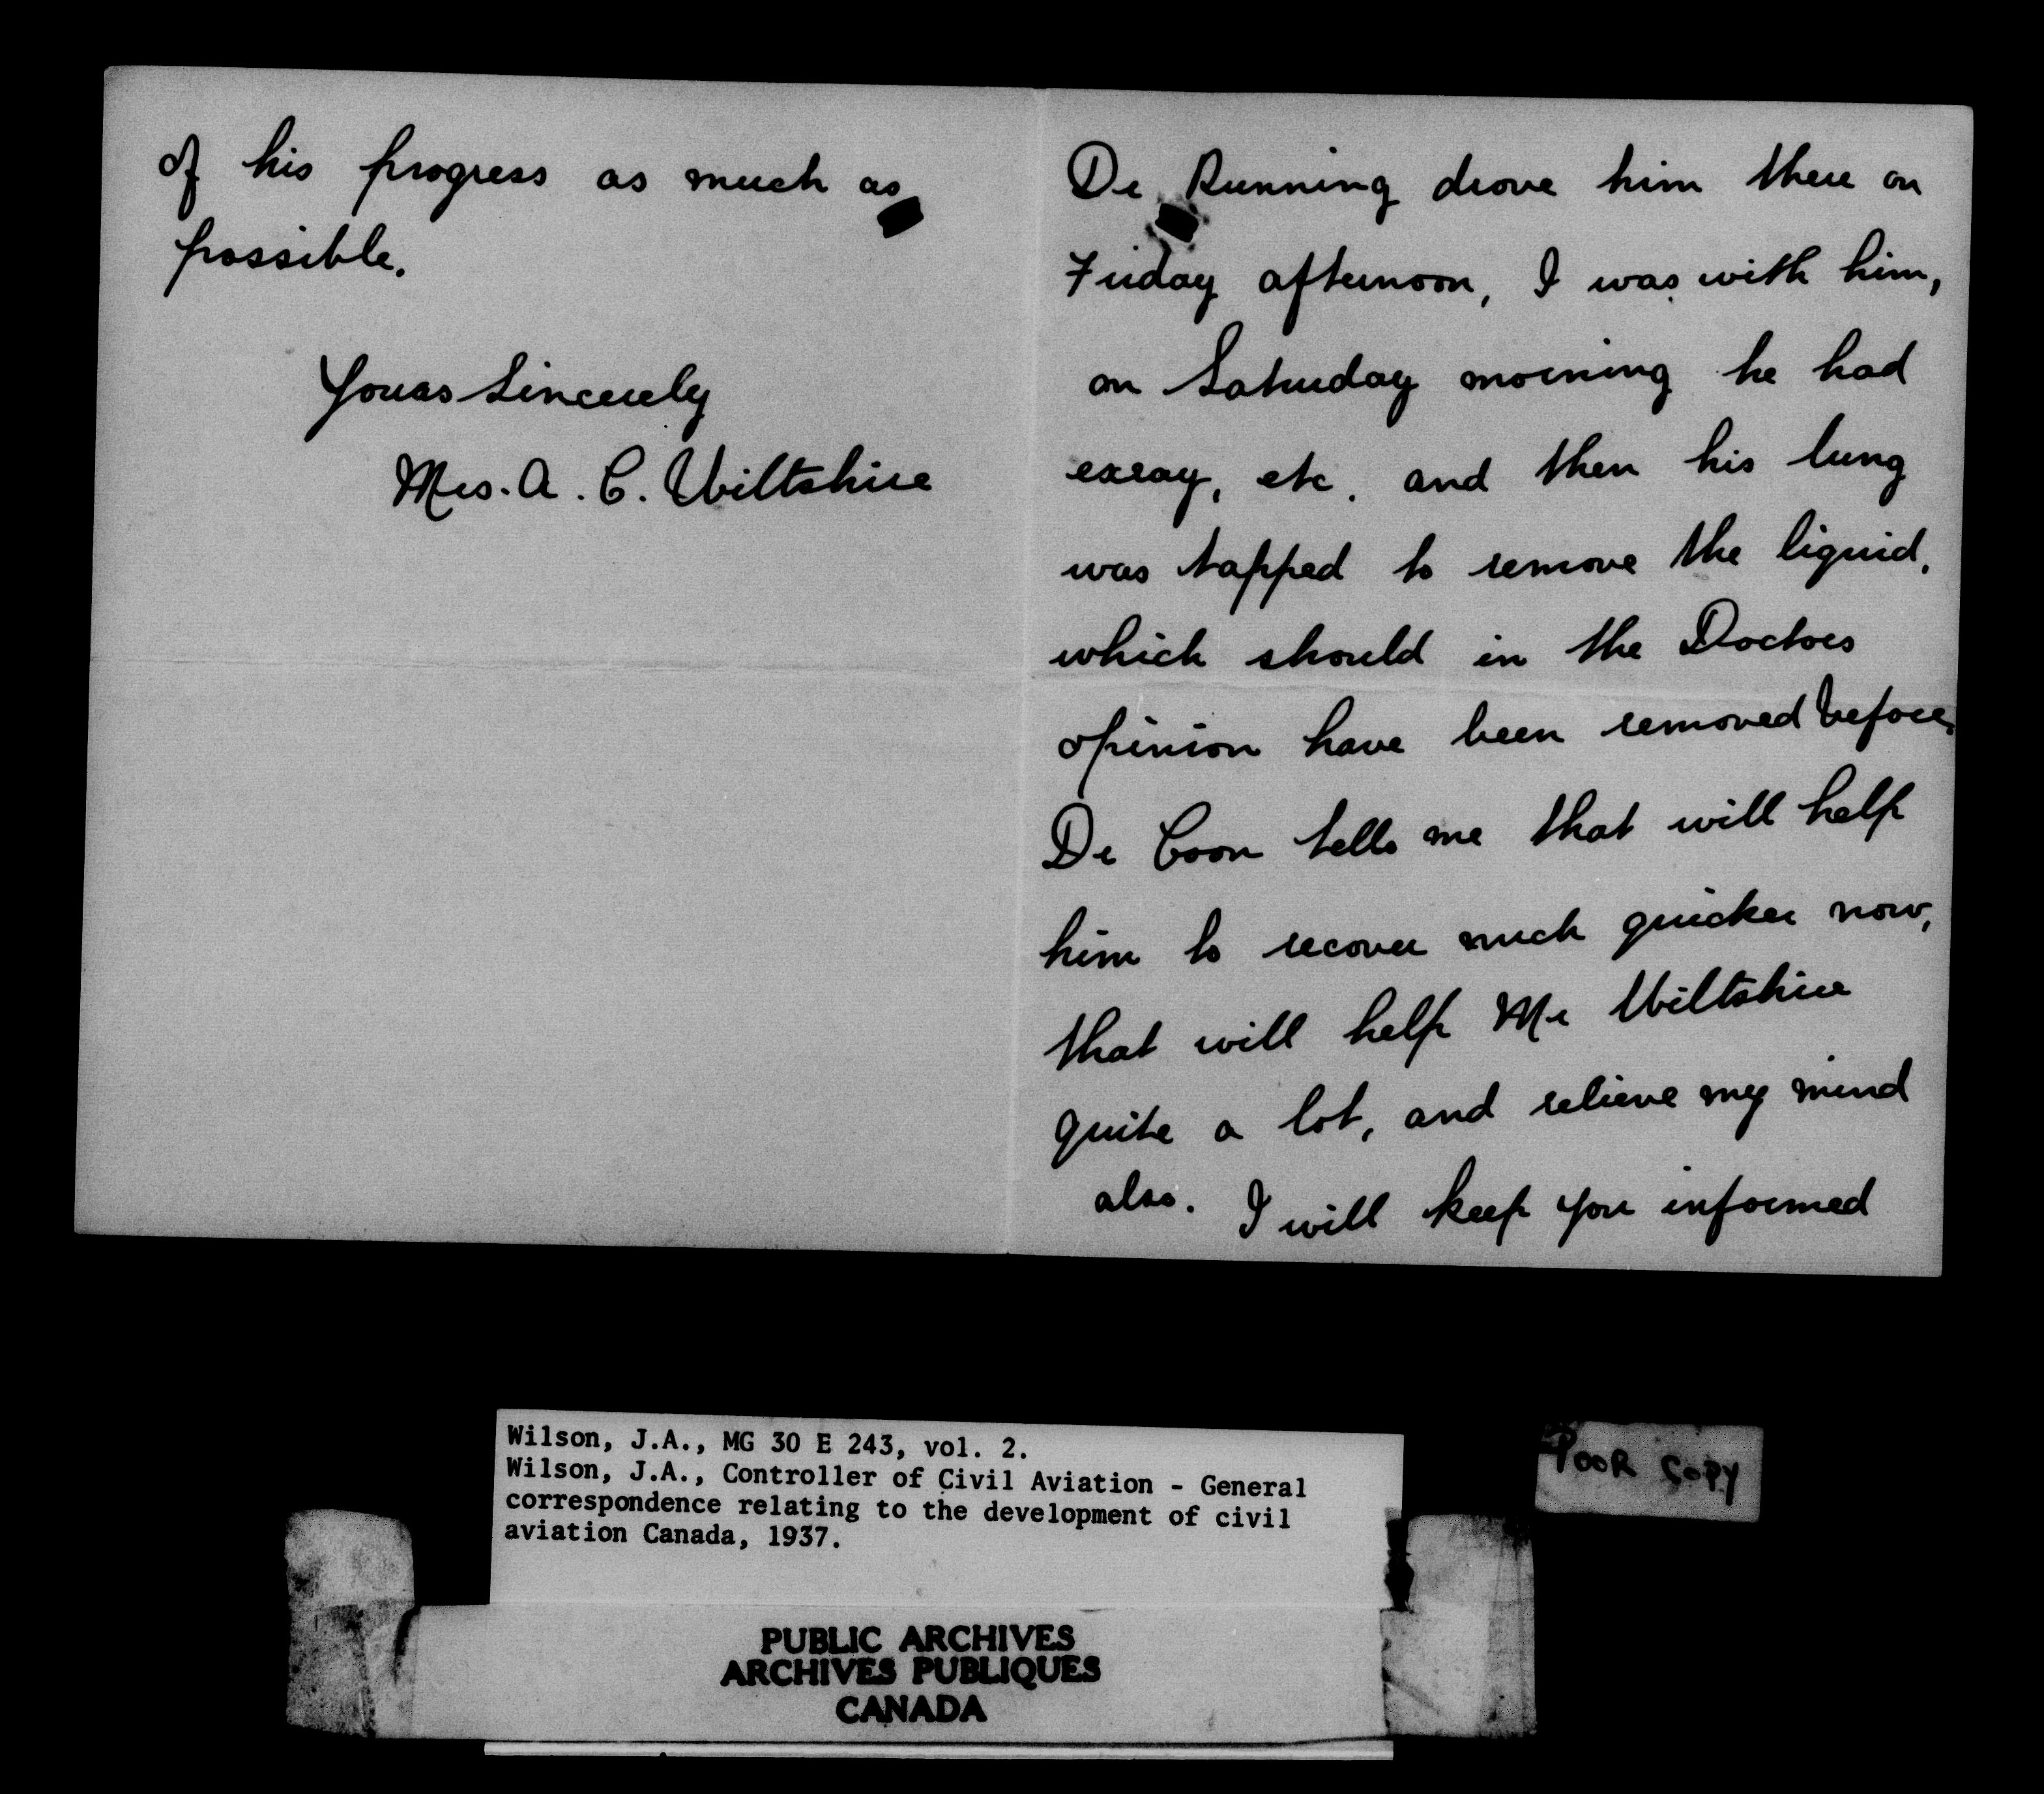 of his progress as much as
possible.
Yours Sincerely
Mrs. A. C. Wiltshire
Dr Running drove him there on
Friday afternoon, I was with him,
on Saturday morning he had
exray, etc. and then his lung
was tapped to remove the liquid,
which should in the Doctors
opinion have been removed before.
Dr Coon tells me that will help
him to recover much quicker now,
that will help Mr Wiltshire
quite a lot, and relieve my mind
also. I will keep you informed
Wilson, J.A., MG 30 E 243, vol. 2.
Wilson, J.A., Controller of Civil Aviation - General
correspondence relating to the development of civil
aviation Canada, 1937.
POOR COPY
PUBLIC ARCHIVES
ARCHIVES PUBLIQUES
CANADA